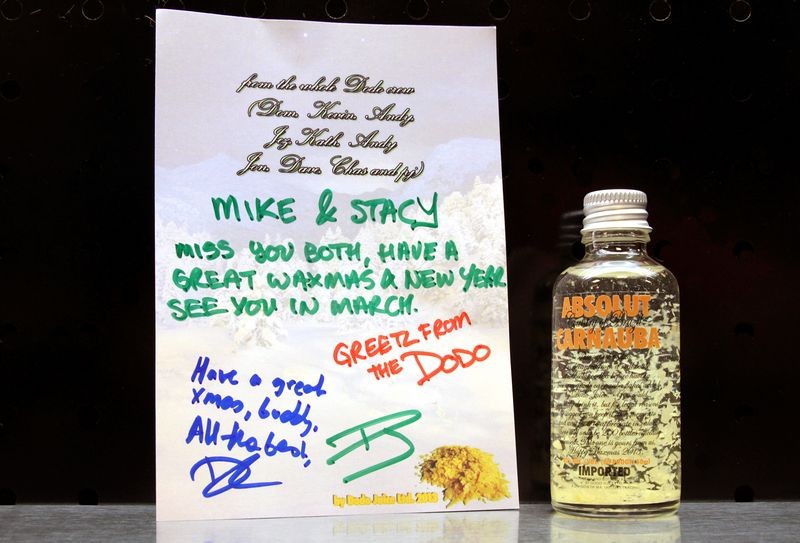 from the whole Dodo crew
(Dom, Kevin, Andy,
Jez, Kath, Andy
Jon, Dave, Chas and pj)
MIKE & STACY
MISS YOU BOTH, HAVE A
GREAT WAXMAS & NEW YEAR
SEE YOU IN MARCH.
GREETZ FROM
THE DODO
Have a great
xmas, buddy.
All the best,
by Dodo Juice Ltd. 2013
ABSOLUT
CARNAUBA
IMPORTED